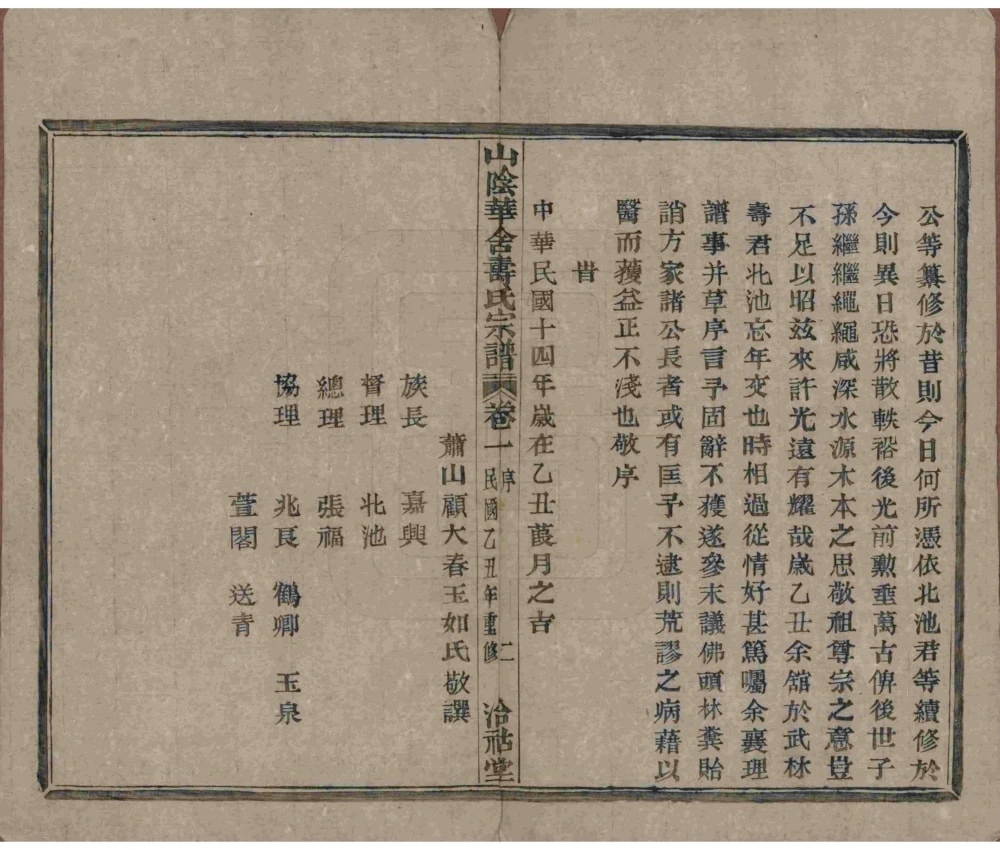 公等纂修於昔則今日何所憑依北池君等續修於
今則異日恐將散軼裕後光前勲垂萬古俾後世子
孫繼繼繩繩咸深水源木本之思敬祖尊宗之意豈
不足以昭兹來許光遠有耀哉歲乙丑余舘於武林
壽君北池忘年交也時相過從情好甚篤囑余襄理
譜事并草序言予固辭不獲遂參末議佛頭林糞貽
誚方家諸公長者或有匡予不逮則荒謬之病藉以
醫而獲益正不淺也敬序
旹
中華民國十四年歲在乙丑葭月之吉
山陰華舍壽氏宗譜 卷一 序 民國乙丑年重修 二 洽祜堂
蕭山顧大春玉如氏敬譔
族長 嘉興
督理 北池
總理 張福
協理 兆良 鶴卿 玉泉
萱閣 送青